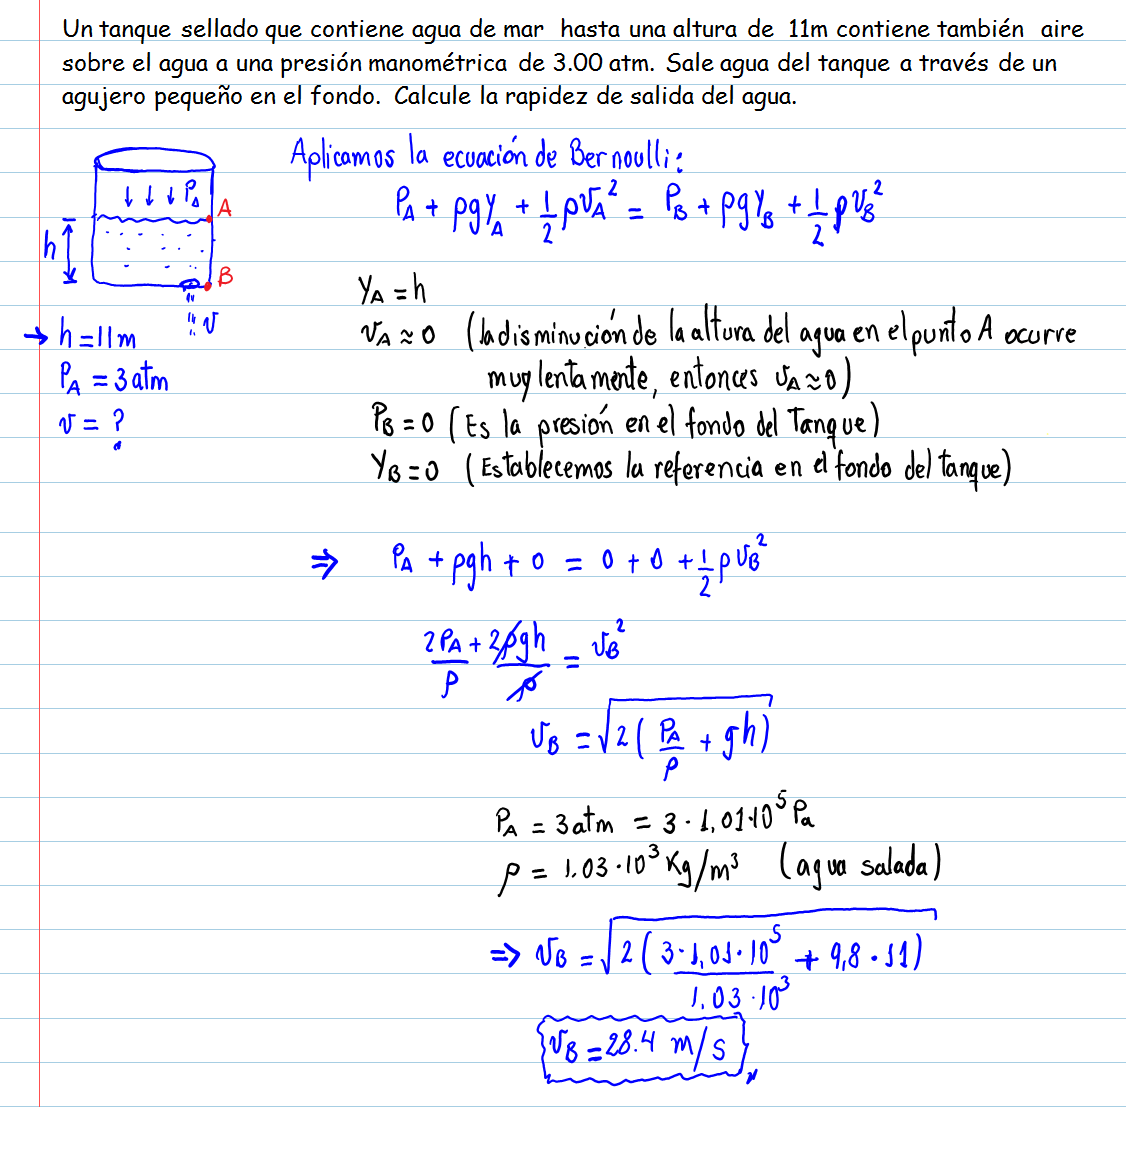 Un tanque sellado que contiene agua de mar hasta una altura de 11m contiene también aire
sobre el agua a una presión manométrica de 3.00 atm. Sale agua del tanque a través de un
agujero pequeño en el fondo. Calcule la rapidez de salida del agua.
Aplicamos la ecuación de Bernoulli:
P_A + ρgy_A + 1/2 ρv_A² = P_B + ρgy_B + 1/2 ρv_B²
P_A
A
h
B
v
→ h = 11m
P_A = 3 atm
v = ?
y_A = h
v_A ≈ 0 (la disminución de la altura del agua en el punto A ocurre
muy lentamente, entonces v_A ≈ 0)
P_B = 0 (Es la presión en el fondo del Tanque)
y_B = 0 (Establecemos la referencia en el fondo del tanque)
⇒ P_A + ρgh + 0 = 0 + 0 + 1/2 ρv_B²
2P_A/ρ + 2ρgh/ρ = v_B²
v_B = √(2(P_A/ρ + gh))
P_A = 3 atm = 3 · 1,01·10⁵ Pa
ρ = 1.03 · 10³ Kg/m³ (agua salada)
⇒ v_B = √(2(3·1,01·10⁵/1.03·10³ + 9,8 · 11))
v_B = 28.4 m/s